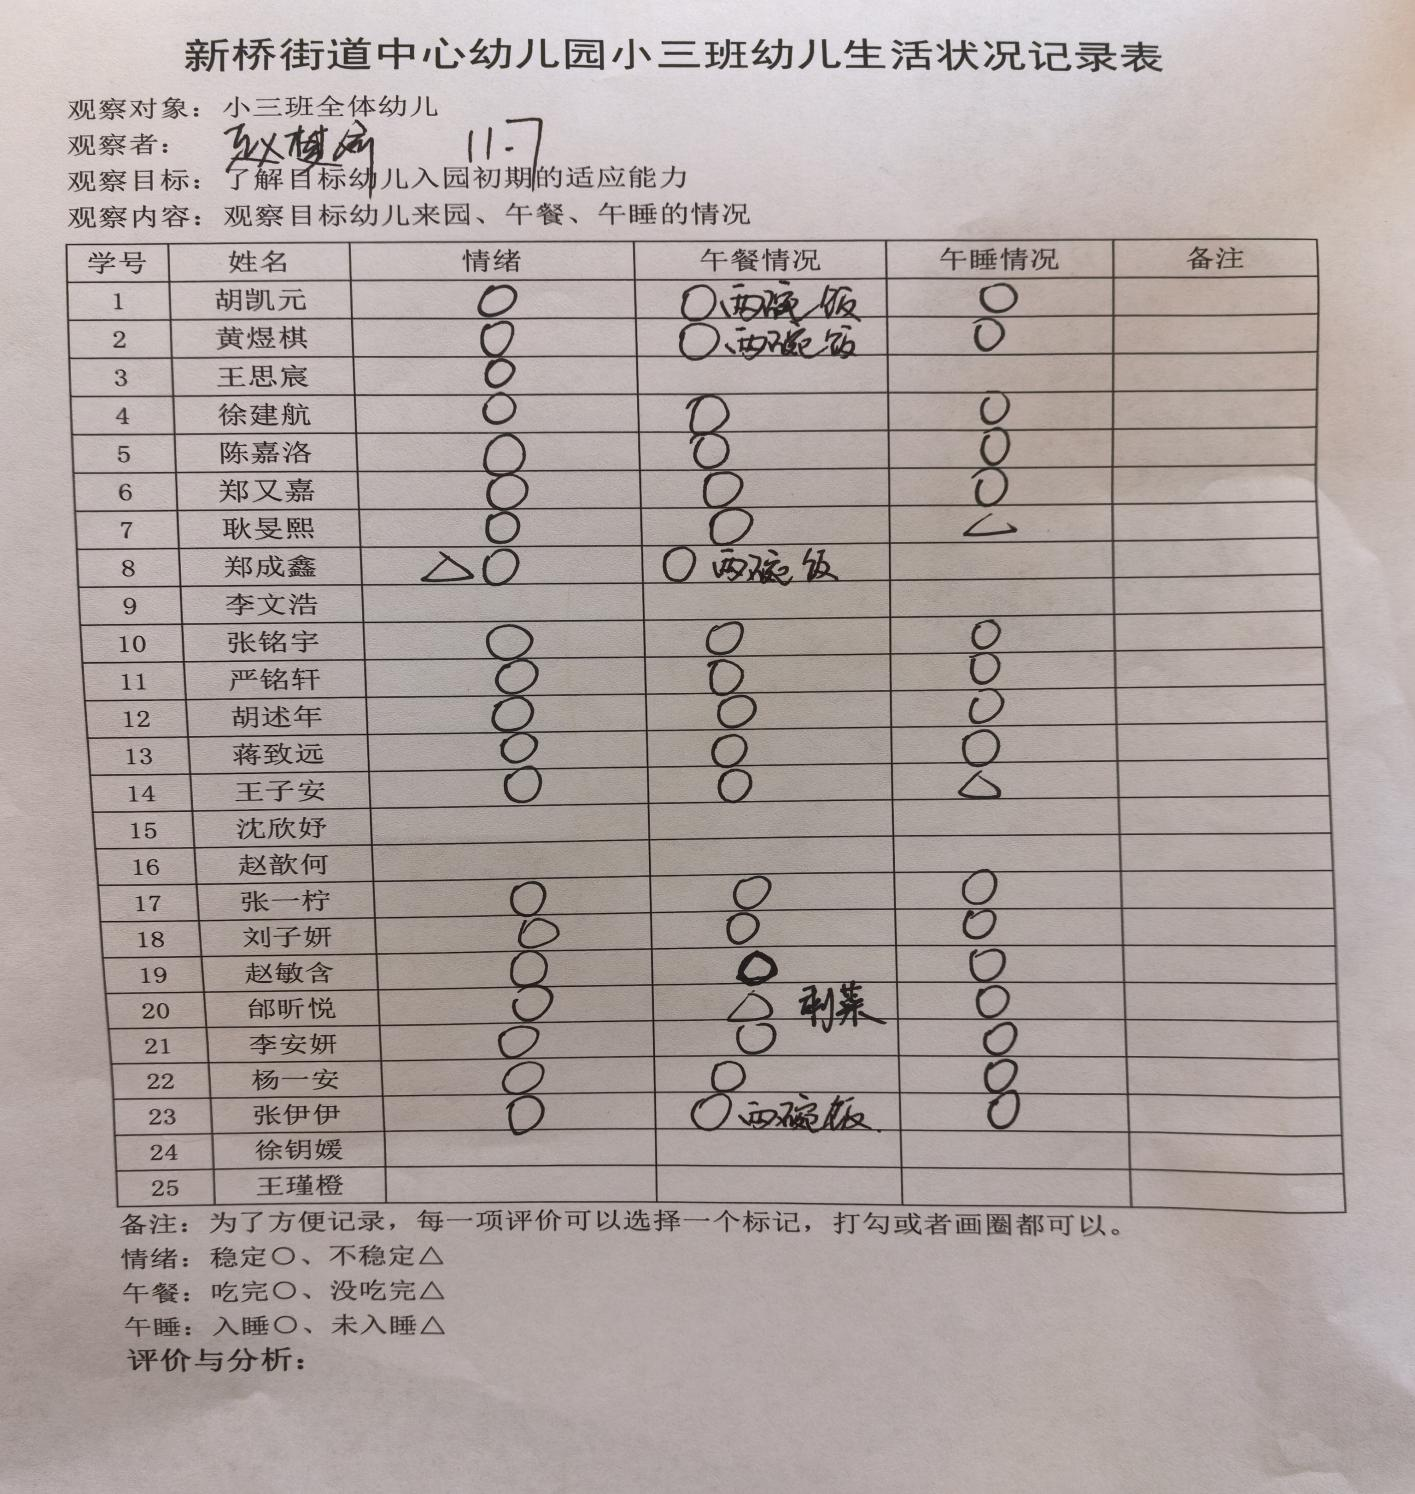 新桥街道中心幼儿园小三班幼儿生活状况记录表
观察对象：小三班全体幼儿
观察者： 11.7
观察目标：了解目标幼儿入园初期的适应能力
观察内容：观察目标幼儿来园、午餐、午睡的情况
学号 姓名 情绪 午餐情况 午睡情况 备注
1 胡凯元 ○ ○两碗饭 ○
2 黄煜棋 ○ ○两碗饭 ○
3 王思宸 ○
4 徐建航 ○ ○ ○
5 陈嘉洛 ○ ○ ○
6 郑又嘉 ○ ○ ○
7 耿旻熙 ○ ○ △
8 郑成鑫 △○ ○两碗饭
9 李文浩
10 张铭宇 ○ ○ ○
11 严铭轩 ○ ○ ○
12 胡述年 ○ ○ ○
13 蒋致远 ○ ○ ○
14 王子安 ○ ○ △
15 沈欣妤
16 赵歆何
17 张一柠 ○ ○ ○
18 刘子妍 ○ ○ ○
19 赵敏含 ○ ○ ○
20 邰昕悦 ○ △ 剩菜 ○
21 李安妍 ○ ○ ○
22 杨一安 ○ ○ ○
23 张伊伊 ○ ○两碗饭. ○
24 徐钥媛
25 王瑾橙
备注：为了方便记录，每一项评价可以选择一个标记，打勾或者画圈都可以。
情绪：稳定○、不稳定△
午餐：吃完○、没吃完△
午睡：入睡○、未入睡△
评价与分析：